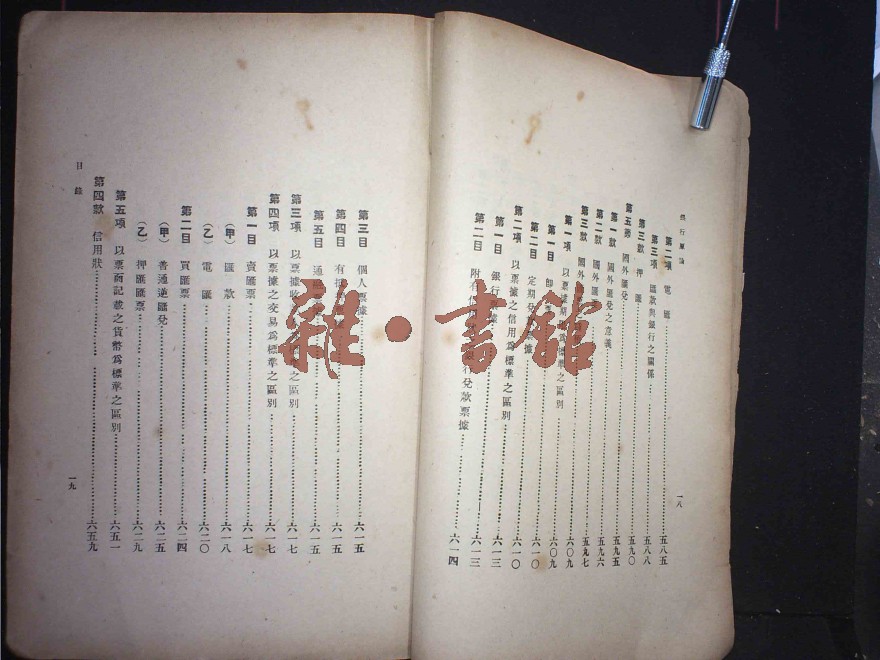 銀行原論
第二項 電匯 五八五
第三項 匯款與銀行之關係 五八八
第三款 押匯 五九〇
第五節 國外匯兌 五九五
第一款 國外匯兌之意義 五九六
第二款 國外匯 五九七
第三款 國外 六〇九
第一項 以票據期 爲標準之區別 六〇九
第一目 卽 六〇九
第二目 定期兌 據 六一〇
第二項 以票據之信用爲標準之區別 六一〇
第一目 銀行票據 六一三
第二目 附有信用 銀行兌款票據 六一三
六一四
一八
第三目 個人票據 六一五
第四目 有押 六一五
第五目 通 六一五
第三項 以票據收 之區別 六一七
第四項 以票據之交易爲標準之區別 六一七
第一目 賣匯票 六一七
(甲) 匯款 六一八
(乙) 電匯 六二〇
第二目 買匯票 六二四
(甲) 普通逆匯兌 六二五
(乙) 押匯匯票 六二九
第五項 以票面記載之貨幣爲標準之區別 六五一
第四款 信用狀 六五九
目錄
一九
雜·書館